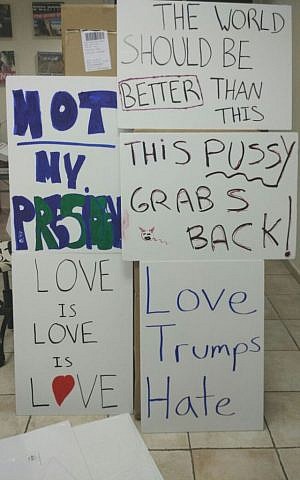 THE WORLD
SHOULD BE
BETTER THAN
THIS
NOT
MY
PRESIDENT
THIS PUSSY
GRABS
BACK!
LOVE
IS
LOVE
IS
LOVE
Love
Trumps
Hate